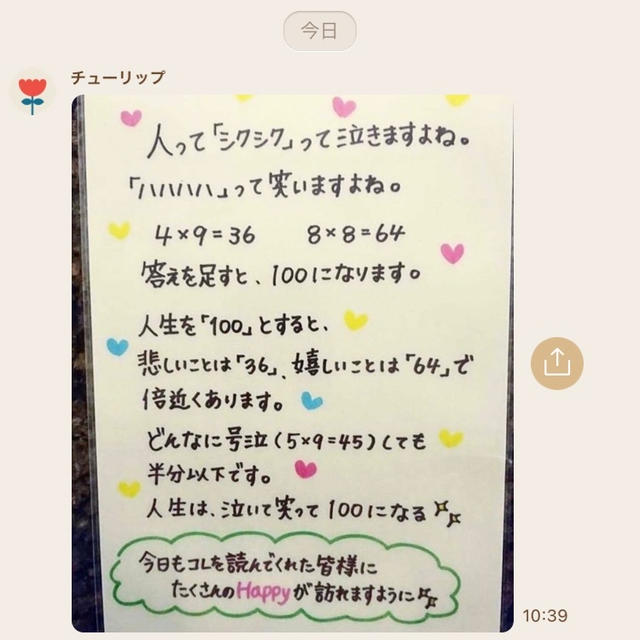 今日
チューリップ
人って「シクシク」って泣きますよね。
「ハハハハ」って笑いますよね。
4×9=36 8×8=64
答えを足すと、100になります。
人生を「100」とすると、
悲しいことは「36」、嬉しいことは「64」で
倍近くあります。
どんなに号泣(5×9=45)しても
半分以下です。
人生は、泣いて笑って100になる
今日もコレを読んでくれた皆様に
たくさんのHappyが訪れますように
10:39